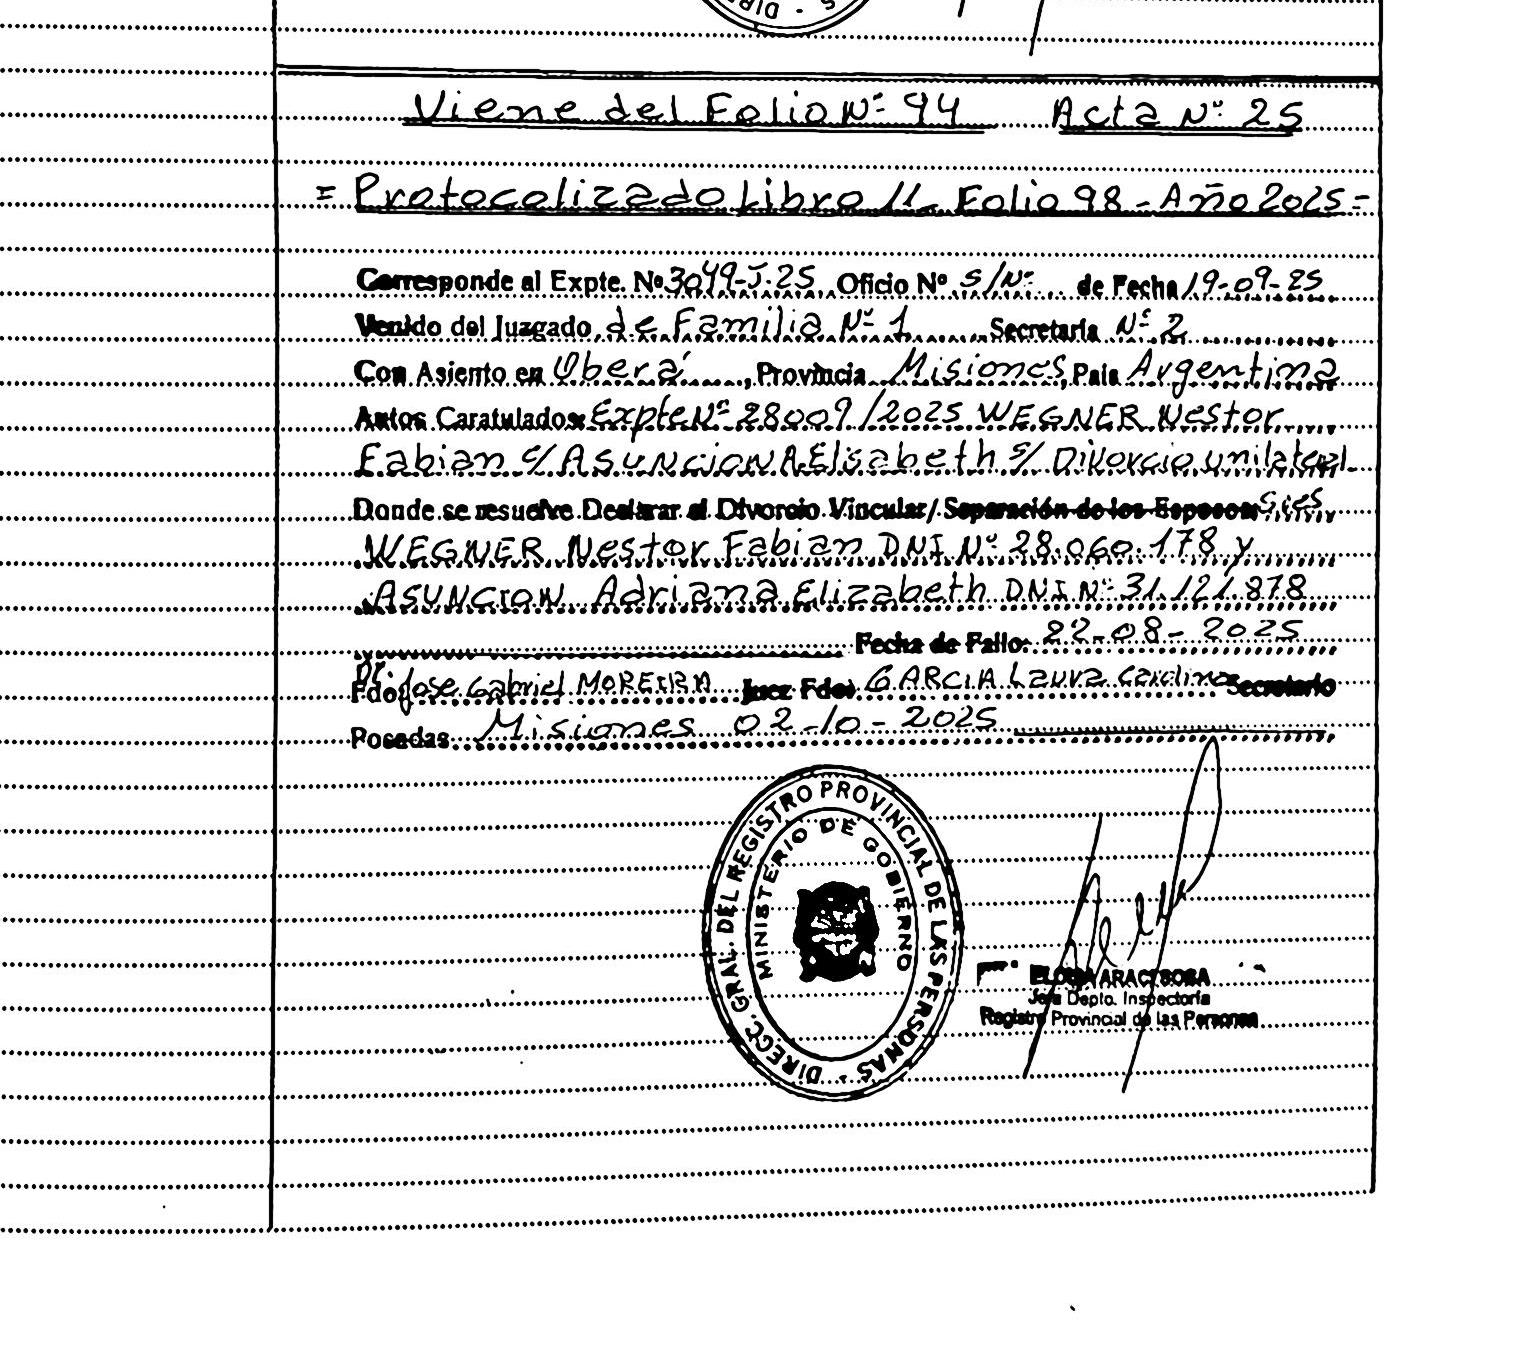 DIRE
Viene del Folio Nº 94 Acta Nº 25
= Protocolizado Libro 11 - Folio 98 - Año 2025 =
Corresponde al Expte. Nº 3049-J-25 Oficio Nº S/Nº de Fecha 19-09-25
Venido del Juzgado de Familia Nº 1 Secretaría Nº 2
Con Asiento en Oberá, Provincia Misiones, País Argentina
Autos Caratulados: Expte Nº 28009/2025 WEGNER Nestor
Fabian c/ ASUNCION A Elisabeth s/ Divorcio unilateral
Donde se resuelve Declarar el Divorcio Vincular/ Separación de los Esposos
WEGNER Nestor Fabian DNI Nº 28.060.178 y
ASUNCION Adriana Elizabeth DNI Nº 31.121.878
Fecha de Fallo: 22-08-2025
Fdo: Dr. Jose Gabriel MOREIRA Juez Fdo: GARCIA Laura Carolina Secretario
Posadas Misiones 02-10-2025
DIRECC. GRAL. DEL REGISTRO PROVINCIAL DE LAS PERSONAS
MINISTERIO DE GOBIERNO
ARACI SOSA
Jefa Depto. Inspectoría
Registro Provincial de las Personas